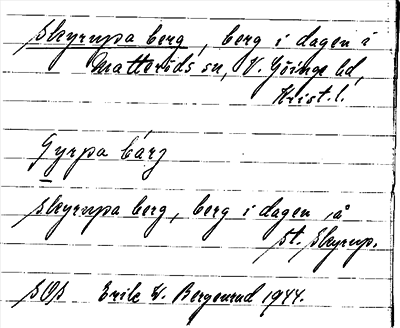 Skyrupa berg, berg i dagen i
Matteröds sn, V. Göinge hd,
Krist. l.
Gyrpa bárg
Skyrupa berg, berg i dagen, å
St. Skyrup.
SOS Erik W. Bergenrud 1944.